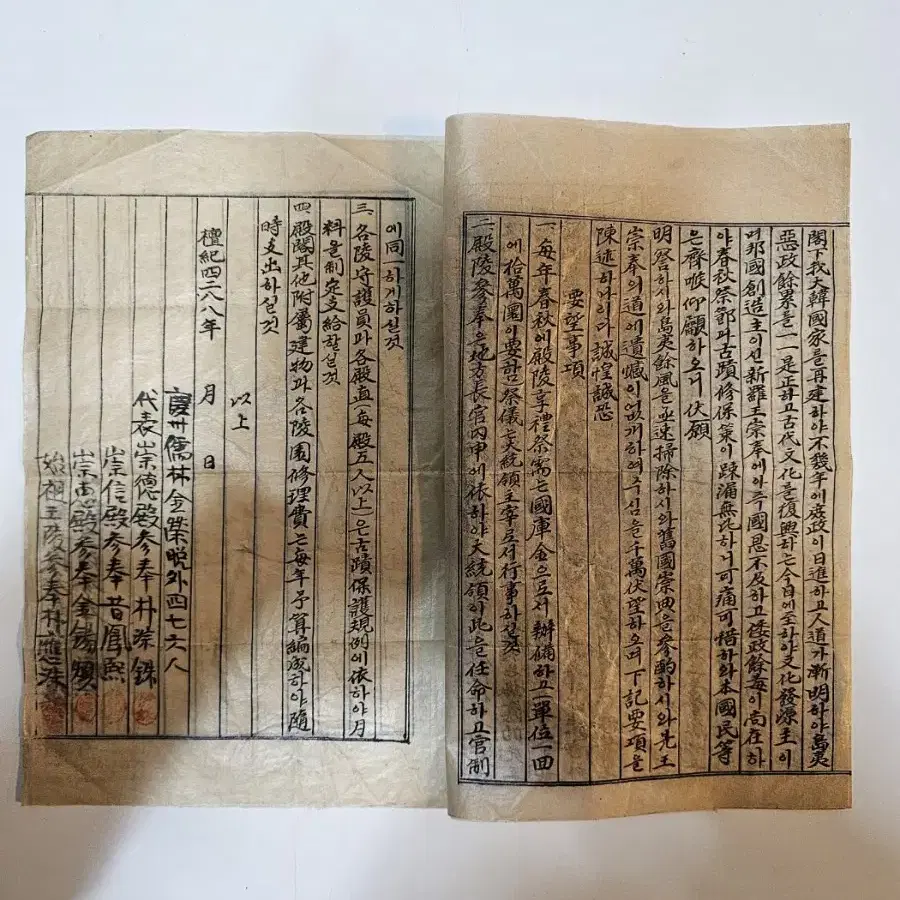 閣下我大韓國家를再建하야不幾年에庶政이日進하고人道가漸明하야島夷
惡政餘累를一一是正하고古代文化를復興하는今日에至하야文化發源主이
며邦國創造主이신新羅王崇奉에아주國恩不及하고倭政餘毒이尚在하
야春秋祭節과古蹟修保策이疎漏無比하니可痛可惜하와本國民等
은齊喉仰願하오니伏願
明察하시와島夷餘風을亟速掃除하시와舊國崇典을參酌하시와先王
崇奉의道에遺憾이없게하여주심을千萬伏望하오며下記要項을
陳述하나이다誠惶誠恐
要望事項
一、每年春秋에殿陵享禮祭需는國庫金으로서辦備하고單位一回
에拾萬圜이要함祭儀는大統領主宰로서行事하실것
二、殿陵參奉은地方長官內申에依하야大統領이此를任命하고官制
에同一하게하실것
三、各陵守護員과各殿直(每殿五人以上)은古蹟保護規例에依하야月
料을制定支給할실것
四、殿閣其他附屬建物과各陵園修理費는每年予算編成하야隨
時支出하실것
以上
檀紀四二八八年 月 日
慶州儒林金榮晩外四七六人
代表崇德殿參奉 朴琮銖
崇信殿參奉 昔厚熙
崇惠殿參奉金
始祖王陵參奉朴